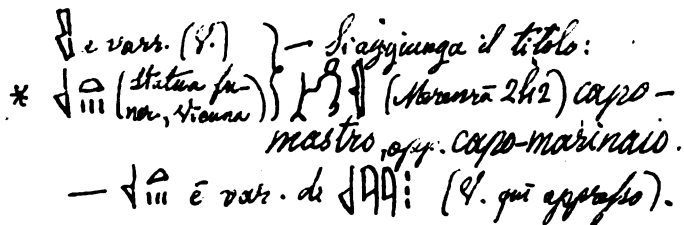 e varr. (V.) } — Si aggiunga il titolo:
* (Statua fu-
ner., Vienna) } (Merenrā 242) capo-
mastro, opp. capo-marinaio.
— è var. di (V. qui appresso).